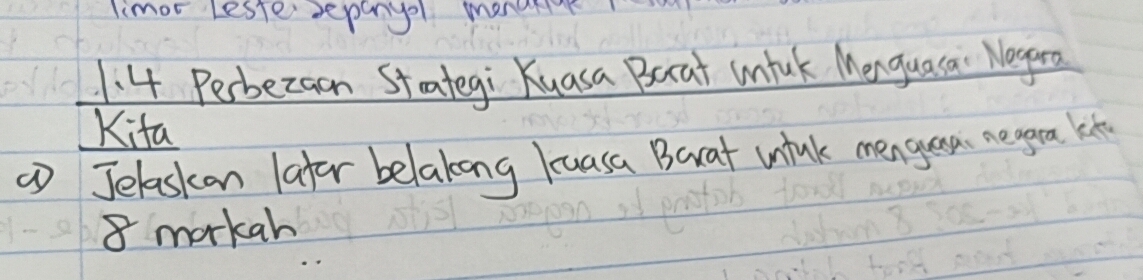 Timor Leste. Sepanyol
1.4 Perbezaan Strategi Kuasa Barat untuk Menguasai Negara
Kita
a) Jelaskan latar belakang kuasa Barat untuk menguasai negara kita
8 markah